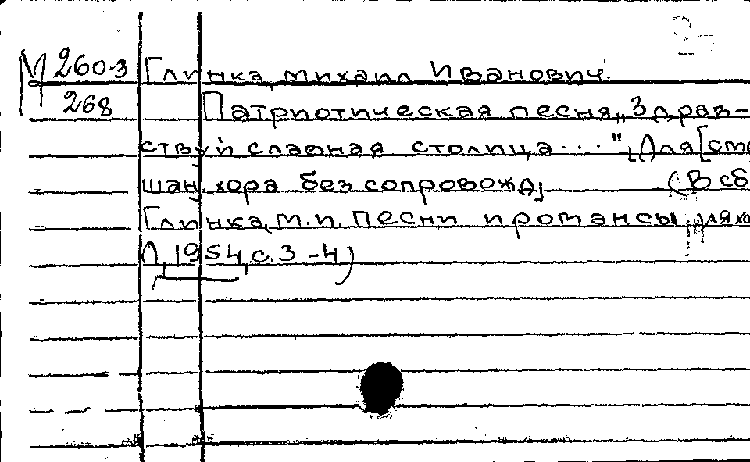 М 260-3 Глинка, Михаил Иванович.
268 Патриотическая песня „Здрав-
ствуй славная столица..." [Для [сме
шан. хора без сопровожд]. (В сб
Глинка, М.И. Песни и романсы для хо
Л, 1954, с. 3-4)